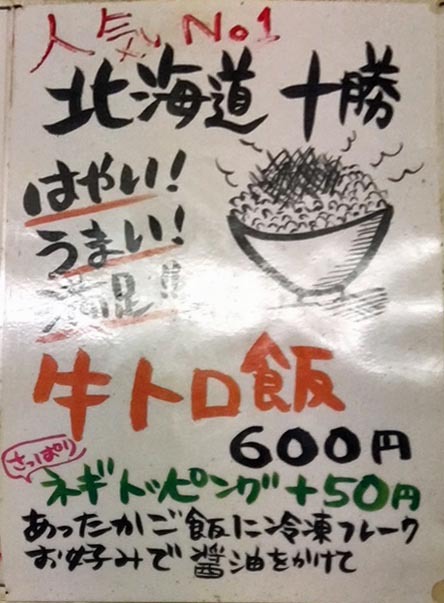 人気No1
北海道 十勝
はやい!
うまい!
満足!!
牛トロ飯
600円
さっぱり
ネギトッピング+50円
あったかご飯に冷凍フレーク
お好みで醤油をかけて